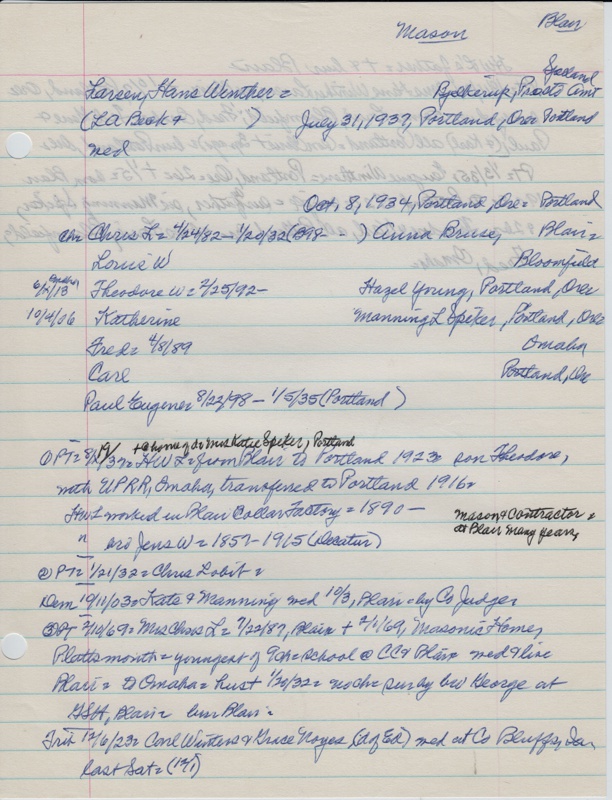 Mason Blair
Larsen, Hans Winther =
(LA Beck &        )    July 31, 1937, Portland, Ore Portland
med
Oct, 8, 1934, Portland, Ore = Portland
Chris L = 4/24/82 - 1/20/32 (B98 - - ) Anna Bruse, Blair =
Louie W    Bloomfield
6/2/13 Theodore W = 2/25/92 -    Hazel Young, Portland, Ore
10/4/06 Katherine    Manning L Spiker, Portland, Ore
Fred = 4/8/89    Omaha
Carl    Portland, Or
Paul Eugene = 8/22/98 - 1/5/35 (Portland)
+ @ home of dr Mrs Katie Spiker, Portland
① PT = HWL = from Blair to Portland 1923 = son Theodore,
with UPRR, Omaha, transferred to Portland 1916 =
HWL worked in Blair Collar Factory = 1890 -
Mason & Contractor =
at Blair many years,
" bro Jens W = 1857 - 1915 (Decatur)
② PT = 1/21/32 = Chris L obit =
Dem 10/11/03 = Kate & Manning med 10/3, Blair = by Co Judge
③ PT 2/10/69 = Mrs Chris L = 7/22/87, Blair + 2/1/69, Masonic Home,
Plattsmouth = youngest of 9 ch = school @ CC & Blair med & live
Blair = to Omaha = husb 1/20/32 = no ch = surv by bro George at
GSH, Blair = bur Blair =
Trib 12/6/23 = Carl Winters & Grace Noyes (d of Ed) med at Co Bluffs, Ia
last Sat = (12/1)